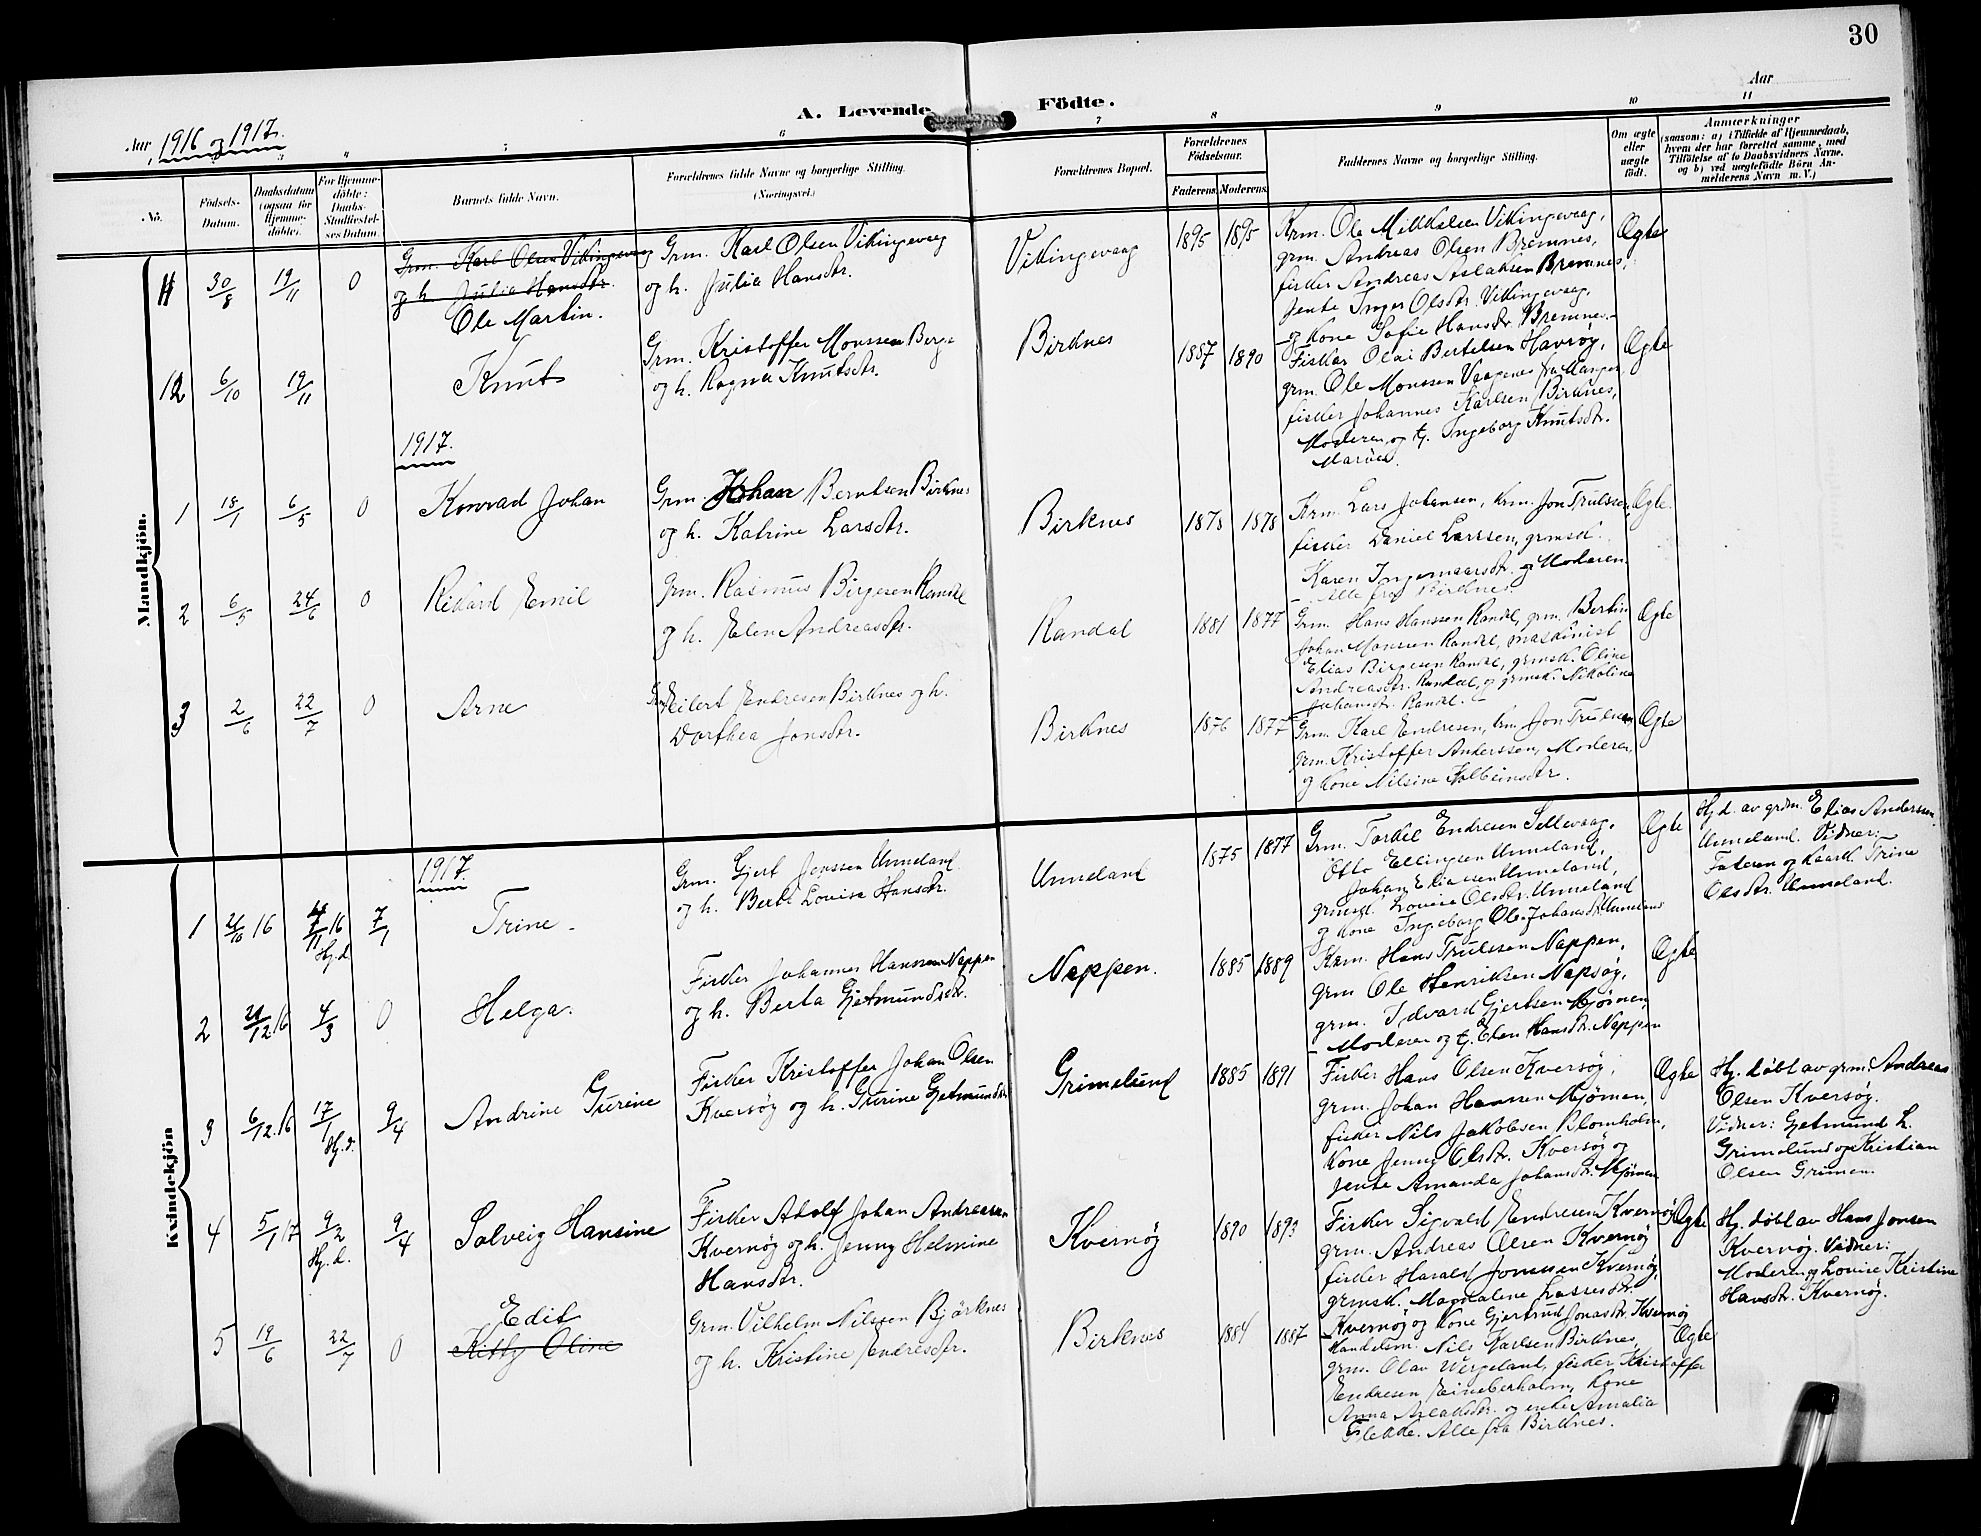 30
Aar 1916 og 1917.
A. Levende Födte.
Aar
3
4
5
6
7
8
9
10
11
No.
Födsels-
Datum.
Daabsdatum
(ogsaa for
Hjemme-
döbte).
For Hjemme-
döbte:
Daabs-
Stadfæstel-
ses Datum.
Barnets fulde Navn.
Forældrenes fulde Navne og borgerlige Stilling.
(Næringsvei.)
Forældrenes Bopæl.
Forældrenes
Födselsaar.
Faderens. Moderens.
Faddernes Navne og borgerlige Stilling.
Om ægte
eller
uægte
födt.
Anmærkninger
(saasom: a) i Tilfælde af Hjemmedaab,
hvem der har forrettet samme, med
Tilföielse af to Daabsvidners Navne,
og b) ved uægtefödte Börn An-
melderens Navn m. V.)
Mandkjön.
11 30/8 19/11 0
Grm. Karl Olsen Vikingevaag
og h. Julia Hansdtr.
Ole Martin.
Grm. Karl Olsen Vikingevaag
og h. Julia Hansdtr.
Vikingevaag
1895 1895
Krm. Ole Mikkelsen Vikingevaag,
grm. Andreas Olsen Bremnes,
fisker Andreas Aslaksen Bremnes,
Jente Inger Olsdtr. Vikingevaag,
og Kone Sofie Hansdr. Bremnes.
Ægte
12 6/10 19/11
Knut
Grm. Kristoffer Monssen Berge
og h. Ragna Knutsdtr.
Birknes
1887 1890
Fisker Olai Bertelsen Havrøy,
grm. Ole Monssen Vaagenes fra Manger,
fisker Johannes Karlsen Birknes,
Moderen og tj. Ingeborg Knutsdtr.
Marøen.
Ægte
1917.
1 18/1 6/5 0
Konrad Johan
Grm. Johan Berntsen Birknes
og h. Katrine Larsdtr.
Birknes
1878 1878
Krm. Lars Johansen, Krm. Jon Trulssen,
fisker Daniel Larssen, grmsk.
Karen Ingemaarsdtr. og Moderen.
Alle fra Birknes.
Ægte.
2 6/5 24/6 0
Rikard Emil
Grm. Rasmus Birgesen Randal
og h. Elen Andreasdtr.
Randal
1881 1877
Grm. Hans Hanssen Randal, grm. Bertin
Johan Monssen Randal, maskinist
Elias Birgesen Randal, grmsk. Oline
Andreasdtr. Randal, og grmsk. Nikoline
Johansdtr. Randal.
Ægte
3 2/6 22/7 0
Arne
Grm. Eilert Endresen Birknes og h.
Dorthea Jonsdtr.
Birknes
1876 1877
Grm. Karl Endresen, Krm. Jon Trulssen
grm. Kristoffer Anderssen, Moderen,
og Kone Nilsine Kolbeinsdtr.
Ægte
Kvindekjön
1917.
1 21/10 16 7/11 16 Hj.d. 7/1
Trine.
Grm. Gjert Jonssen Unneland
og h. Berte Lovise Hansdtr.
Unneland
1875 1877
Grm. Torkel Endresen Sellevaag,
Otto Ellingsen Unneland,
Johan Eliassen Unneland,
grmsk. Lovise Olsdtr. Unneland
og Kone Ingeborg Ole Johansdtr. Unneland
Ægte
Hj.d. av grdm. Elias Anderssen
Unneland. Vidner:
Faderen og Trine
Olsdtr. Unneland.
2 21/12 16 4/3 0
Helga.
Fisker Johannes Hanssen Nappen
og h. Berta Gjetmundsdtr.
Nappen.
1885 1889
Krm. Hans Trulssen Nappen,
grm Ole Henriksen Napsøy,
grm. Edvard Gjertsen Mjømen,
Moderen og tj. Elen Hansdtr. Nappen
Ægte
3 6/12.16 17/1 Hj.d. 9/4
Andrine Gurine
Fisker Kristoffer Johan Olsen
Kversøy og h. Gurine Gjetmundsdtr.
Grimelund
1885 1891
Fisker Hans Olsen Kversøy,
grm. Johan Hanssen Mjømen,
fisker Nils Jakobsen Blomholm,
Kone Jenny Olsdtr. Kversøy og
jente Amanda Johansdtr. Mjømen
Ægte
Hj. døbt av grm. Andreas
Olsen Kversøy.
Vidner: Gjetmund L.
Grimelund og Kristian
Olsen Grimen.
4 5/1 17 9/2 Hj.d. 9/4
Solveig Hansine
Fisker Adolf Johan Andreassen
Kvernøy og h. Jenny Helmine
Hansdtr.
Kvernøy
1890 1893
Fisker Sigvald Endresen Kvernøy
grm. Andreas Olsen Kvernøy
fisker Harald Jonassen Kvernøy,
grmsk. Magdalene Lassesdtr.
Kvernøy og Kone Gjertrud Jonasdtr. Kvernøy
Ægte
Hj. døbt av Hans Jonsen
Kvernøy. Vidner:
Moderen og Lovise Kristine
Hansdtr. Kvernøy.
5 19/6 22/7 0
Edit
Kitty Oline
Grm. Vilhelm Nilssen Bjørknes
og h. Kristine Endresdtr.
Birknes
1884 1887
Handelsm. Nils Karlsen Birknes,
grm. Olav Wergeland, fisker Kristoffer
Endresen Eineberholm, Kone
Anna Aslaksdtr. og enke Amalia
Flekke. Alle fra Birknes.
Ægte